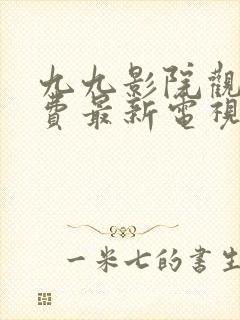 九九影院觀
費最新電視
一米七的書生